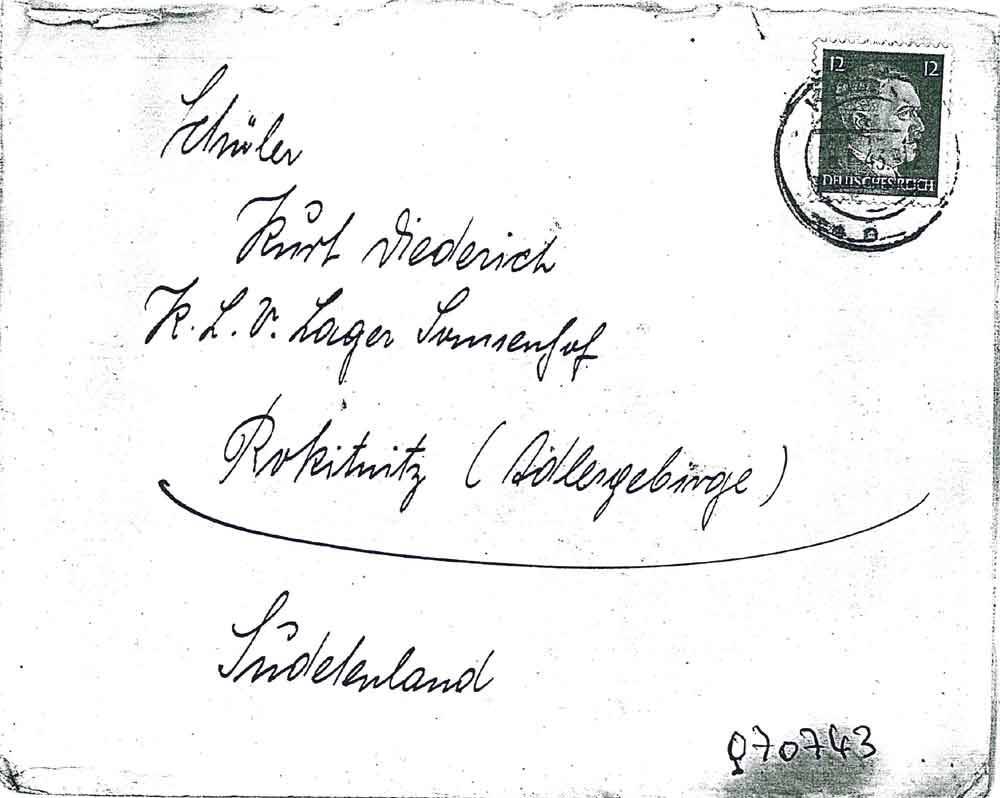 12 12
43
DEUTSCHES REICH
Schüler
Kurt Diederich
K. L. V. Lager Sonnenhof
Rokitnitz (Adlergebirge)
Sudetenland
070743